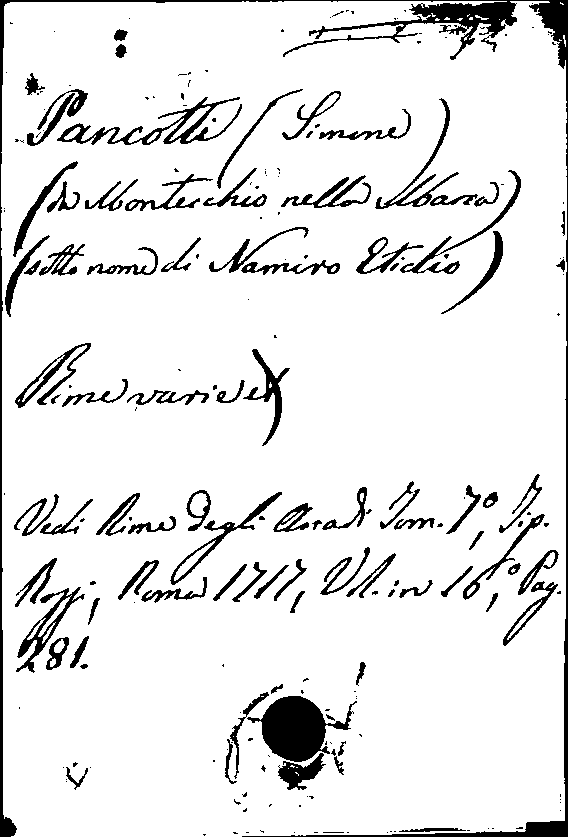 Pancotti (Simone)
(da Montecchio nella Marca)
(sotto nome di Namiro Eticlio)
Rime varie
Vedi Rime degli Arcadi Tom. 7º, Tip.
Rossi, Roma 1717, Vol. in 16,º Pag.
281.